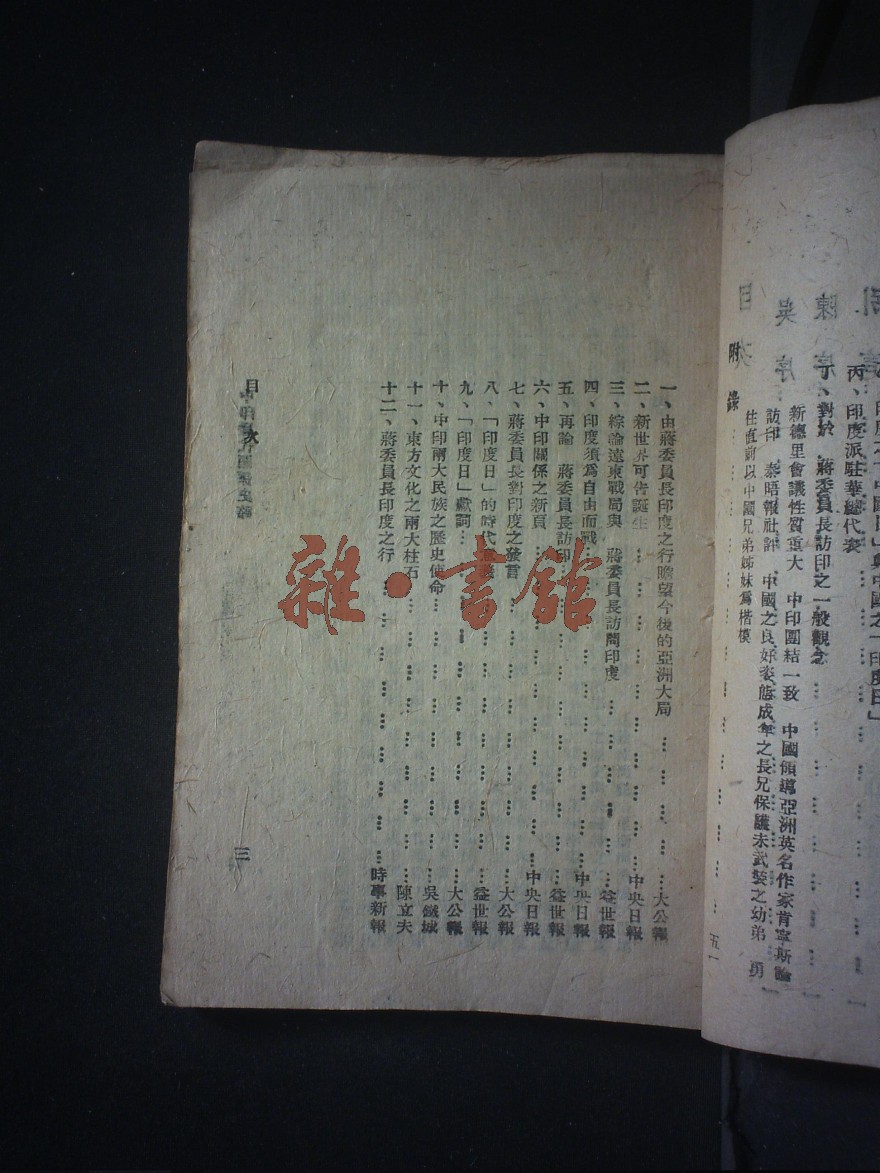 丙、印度派駐華總代表
丁、對於 蔣委員長訪印之一般觀念
新德里會議性質重大 中印團結一致 中國領導亞洲英名作家肯寧斯論
訪印 泰晤報社評 中國之良好姿態成年之長兄保護未武裝之幼弟 勇
往直前以中國兄弟姊妹為楷模
附錄
一、由蔣委員長印度之行瞻望今後的亞洲大局……大公報
二、新世界可告誕生……中央日報
三、綜論遠東戰局與 蔣委員長訪問印度……益世報
四、印度須爲自由而戰……中央日報
五、再論 蔣委員長訪印……益世報
六、中印關係之新頁……中央日報
七、蔣委員長對印度之發言……大公報
八、「印度日」的時代意義……益世報
九、「印度日」獻詞……大公報
十、中印兩大民族之歷史使命……吳鐵城
十一、東方文化之兩大柱石……陳立夫
十二、蔣委員長印度之行……時事新報
目次
三
雜·書館